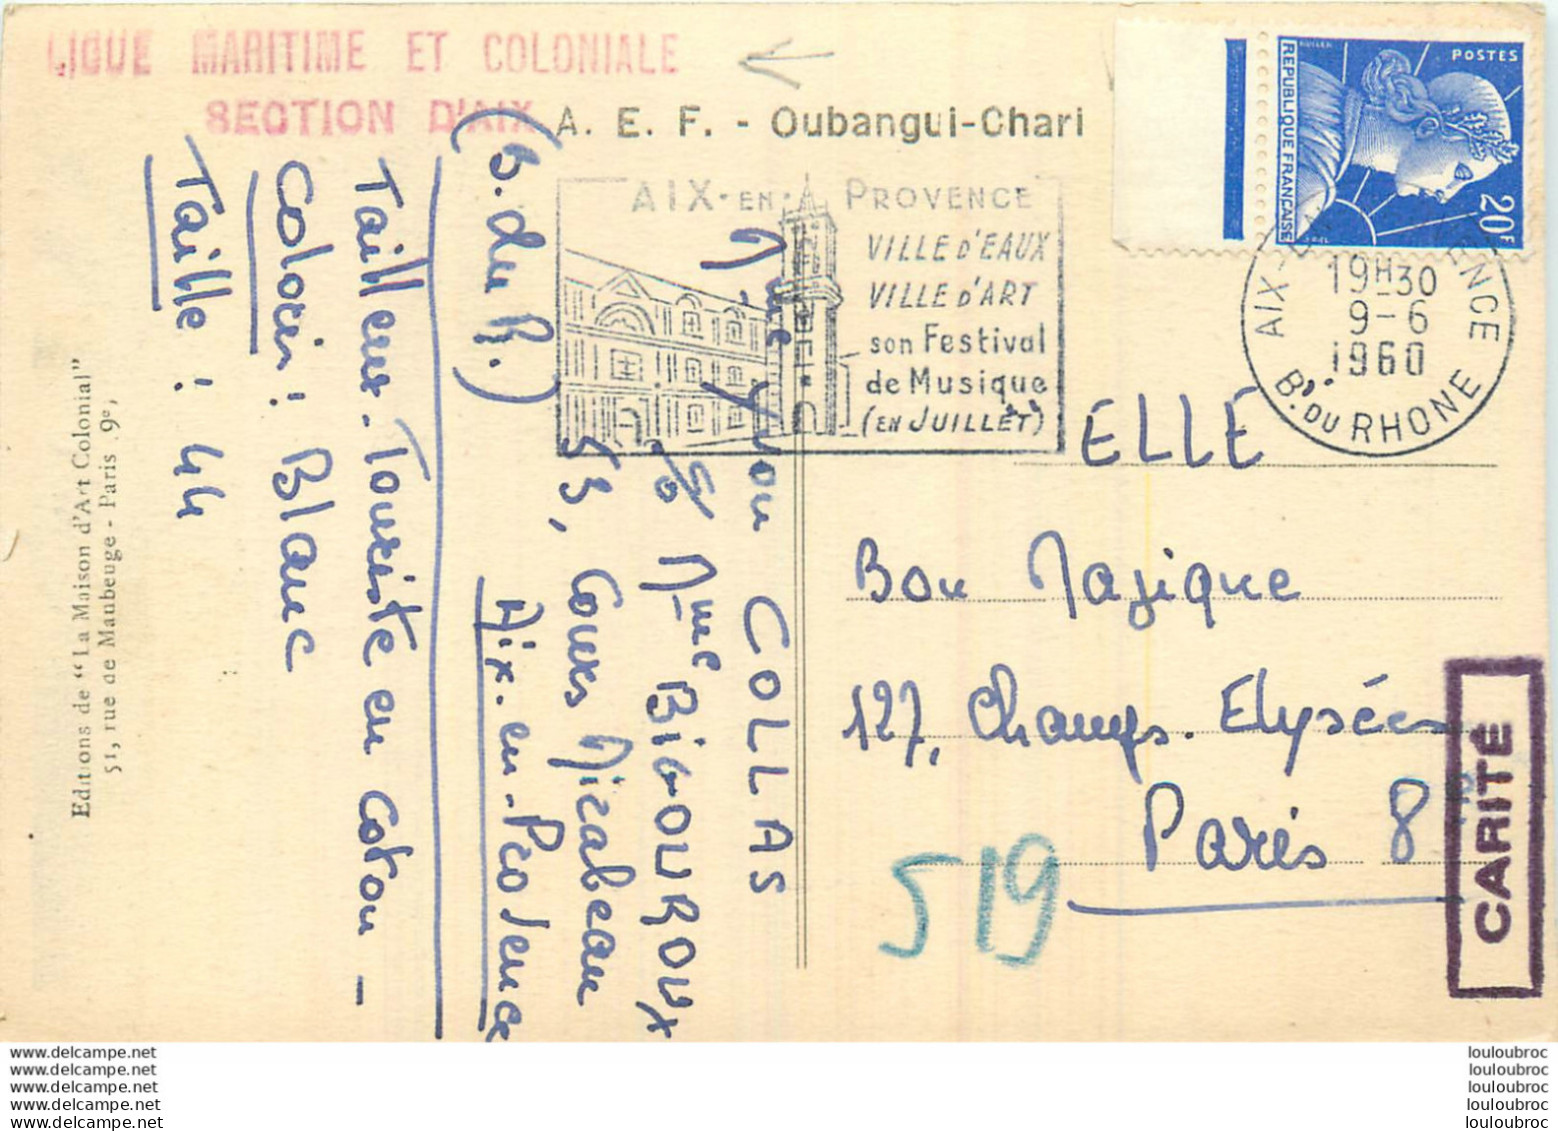 LIGUE MARITIME ET COLONIALE
SECTION D'AIX
A. E. F. - Oubangui-Chari
AIX-EN-PROVENCE
VILLE D'EAUX
VILLE D'ART
son Festival
de Musique
(EN JUILLET)
POSTES
20F
REPUBLIQUE FRANÇAISE
MULLER
AIX-EN-PROVENCE
19H30
9-6
1960
B. DU RHONE
ELLE
Bon Magique
127, Champs. Elysées
Paris 8
CARITÉ
519
Mme Yvon COLLAS
c/o Mme BIGOUROUX
53, Cours Mirabeau
Aix-en-Provence
(B. du R.)
Tailleur-Touriste en coton -
Coloris : Blanc
Taille : 44
Editions de "La Maison d'Art Colonial"
51, rue de Maubeuge - Paris 9e,
www.delcampe.net
www.delcampe.net
www.delcampe.net
www.delcampe.net
www.delcampe.net
louloubroc
louloubroc
louloubroc
louloubroc
louloubroc